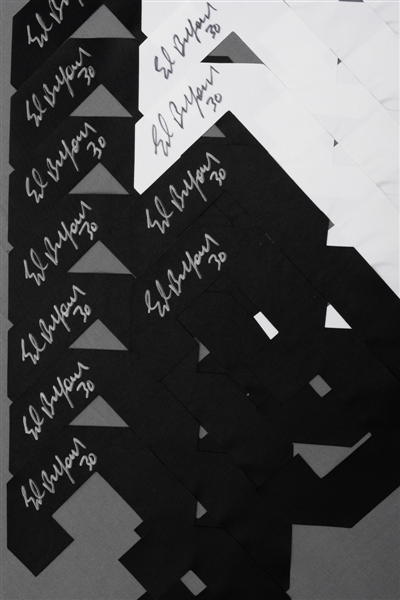 Ed Belfour
Ed Belfour 30
Ed Belfour 30
Ed Belfour 30
Ed Belfour 30
Ed Belfour 30
Ed Belfour 30
Ed Belfour 30
Ed Belfour 30
Ed Belfour 30
Ed Belfour 30